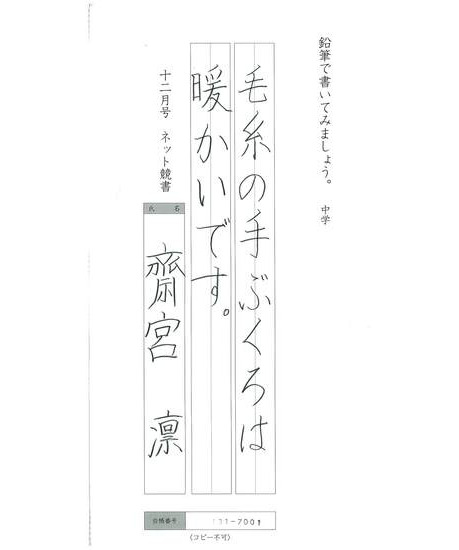 鉛筆で書いてみましょう。 中学
毛糸の手ぶくろは
暖かいです。
十二月号 ネット競書
氏名
齋宮 凛
会格番号
131-7001
(コピー不可)